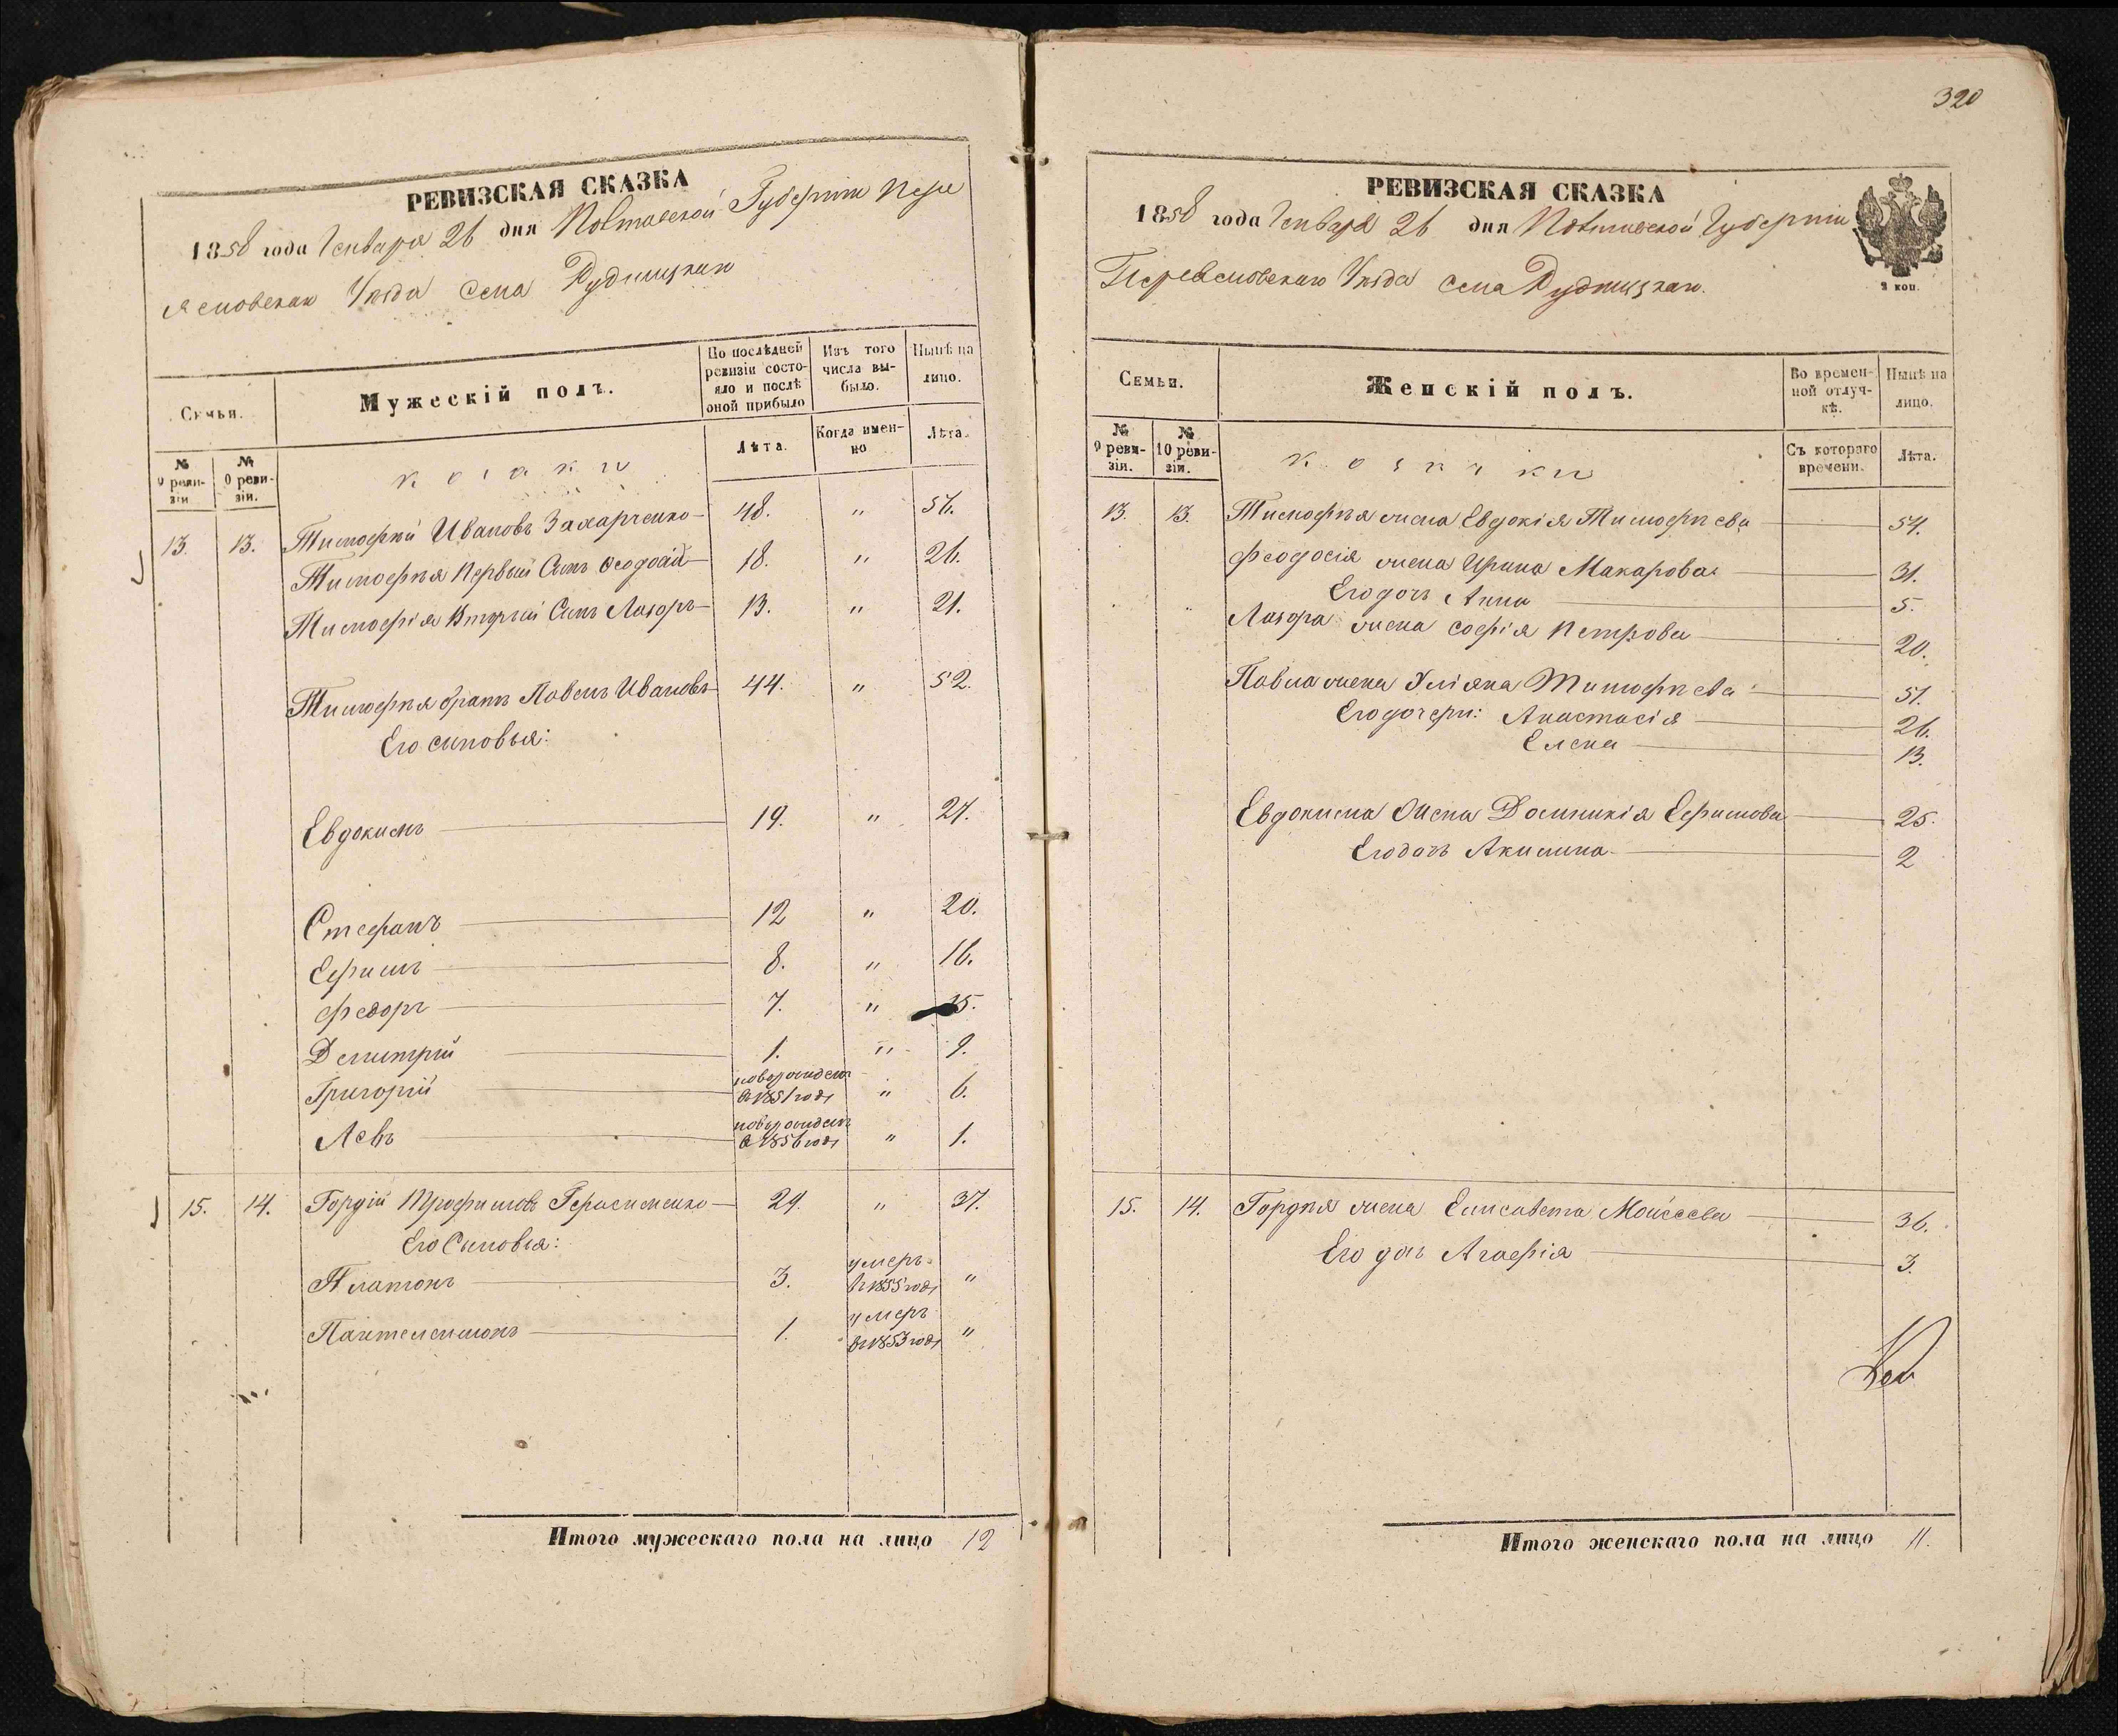 320
РЕВИЗСКАЯ СКАЗКА
1858 года Генваря 26 дня Полтавской Губерніи Пере
яславскаго Уѣзда Села Рудницкаго
Семьи.
Мужескій полъ.
По послѣдней ревизіи состояло и послѣ оной прибыло
Изъ того числа выбыло.
Нынѣ на лицо.
№ 9 ревизіи.
№ 10 ревизіи.
козаки
Лѣта.
Когда именно
Лѣта.
13. 13. Тимофѣй Ивановъ Захарченко 48. " 56.
Тимофѣя Первый Сынъ Феодосій 18. " 26.
Тимофія Вторый Сынъ Лазоръ 13. " 21.
Тимофѣя братъ Павелъ Ивановъ 44. " 52.
Его сыновья:
Евдокимъ 19. " 27.
Стефанъ 12 " 20.
Ефимъ 8. " 16.
Федоръ 7. " 15.
Демитрій 1. " 9.
Григорій новорожденъ в 1851 годѣ " 6.
Левъ новорожденъ в 1856 годѣ " 1.
15. 14. Гордій Трофимовъ Герасименко 29. " 37.
Его Сыновья:
Платонъ 3. умеръ в 1855 годѣ "
Пантелеимонъ 1. умеръ в 1853 годѣ "
Итого мужескаго пола на лицо 12
РЕВИЗСКАЯ СКАЗКА
1858 года Генваря 26 дня Полтавской Губерніи
Переяславскаго Уѣзда Села Рудницкаго.
2 коп.
Семьи.
Женскій полъ.
Во временной отлучкѣ.
Нынѣ на лицо.
№ 9 ревизіи.
№ 10 ревизіи.
козаки
Съ котораго времени.
Лѣта.
13. 13. Тимофѣя жена Евдокія Тимофѣева 54.
Феодосія жена Ирина Макарова 31.
Его дочь Анна 5.
Лазора жена Софія Петрова 20.
Павла жена Уліяна Тимофѣева 51.
Его дочери: Анастасія 26.
Елена 13.
Евдокима Жена Домникія Ефимова 25.
Его дочь Акилина 2
15. 14. Гордѣя жена Елисавета Моисеева 36.
Его дочь Агафія 3.
Итого женскаго пола на лицо 11.